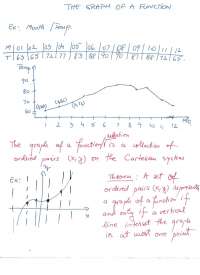 THE GRAPH OF A FUNCTION
Ex: Month / Temp.
M | 01 | 02 | 03 | 04 | 05 | 06 | 07 | 08 | 09 | 10 | 11 | 12
Temp
90
80
70
60
1 2 3 4 5 6 7 8 9 10 11 12
relation
The graph of a function is a collection of
ordered pairs (x,y) on the Cartesian system
Ex:
Theorem: A set of
ordered pairs (x,y) represents
a graph of a function if
and only if a vertical
line intersect the graph
in at most one point.